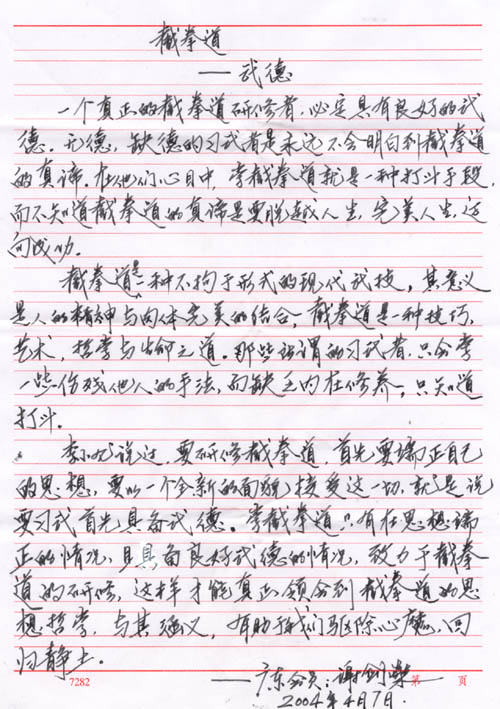 截拳道
——武德
一个真正的截拳道研修者,必定具有良好的武
德。无德,缺德的习武者是永远不会明白到截拳道
的真谛。在他们心目中,李截拳道就是一种打斗手段,
而不知道截拳道的真谛是要脱越人生,完美人生,迈
向成功。
截拳道是一种不拘于形式的现代武技,其意义
是人的精神与肉体完美的结合,截拳道是一种技巧,
艺术,哲学与生命之道。那些所谓的习武者,只会学
一些伤残他人的手法,而缺乏内在修养,只知道
打斗。
李小龙说过,要研修截拳道,首先要端正自己
的思想,要以一个全新的面貌接受这一切,就是说
要习武首先具备武德。学截拳道只有在思想端
正的情况,且具备良好武德的情况,致力于截拳
道的研修,这样才能真正领会到截拳道的思
想哲学,与其涵义,有助于我们驱除心魔,回
归静土。
——广东会员:谢剑
2004年4月7日.
7282 第 页